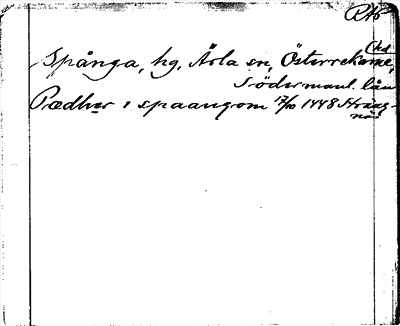 RAp
Spånga, hg, Ärla sn, Österrekarne,
Södermanl. län
Pædher i spaangom 17/10 1448 Sträng-
näs